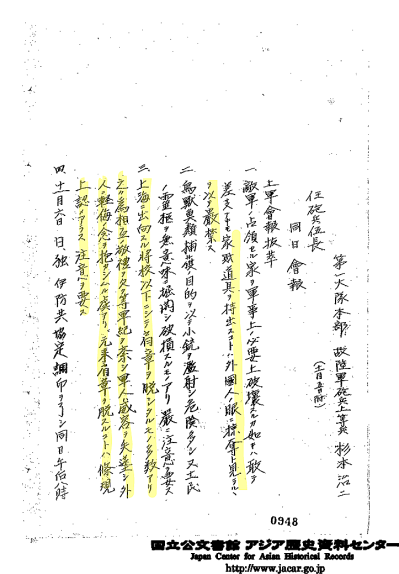 第一大隊本部 故陸軍砲兵上等兵 杉本治二
(十一月五日附)
任砲兵伍長
同日會報
上軍會報抜萃
一 敵軍ノ占領セル家ヲ軍事上ノ必要上破壊スルカ如キハ敢テ
差支ナキモ家財道具ヲ持出スコトハ外國人ノ眼ニ掠奪ト見ラルヽ
ヲ以テ厳禁ス
二 鳥獣魚類捕獲ノ目的ヲ以テ小銃ヲ濫射シ危険多シ又土民
ノ霊柩ヲ無意味ニ堀開シ破損スルモノアリ厳ニ注意ヲ要ス
三 上海ニ出向スル将校以下ニシテ肩章ヲ脱シアルモノ多数アリ
之カ為相互ノ敬禮ヲ欠キ軍紀ヲ紊シ軍人ノ威容ヲ失墜シ外
人ニ軽侮ノ念ヲ抱カシムル虞アリ元来肩章ヲ脱スルコトハ條規
上認メアラス注意ヲ要ス
四 十一月六日 日、独、伊防共協定調印ヲ了シ同日午后八時
0948
国立公文書館 アジア歴史資料センター
Japan Center for Asian Historical Records
http://www.jacar.go.jp